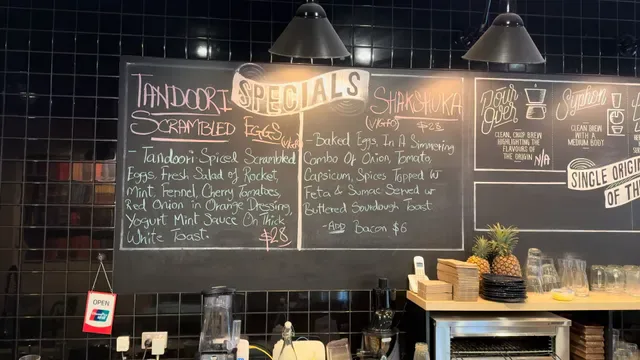 SPECIALS
TANDOORI
SCRAMBLED EGGS
- Tandoori Spiced Scrambled
Eggs, Fresh Salad of Rocket,
Mint, Fennel, Cherry Tomatoes,
Red Onion in Orange Dressing,
Yogurt Mint Sauce On Thick
White Toast.
$28
SHAKSHUKA
$28
- Baked Eggs, In A Simmering
Combo Of Onion, Tomato,
Capsicum, Spices Topped w
Feta & Sumac Served w
Buttered Sourdough Toast
- ADD Bacon $6
Pour
Over
CLEAN, CRISP BREW
HIGHLIGHTING THE
FLAVOURS OF
THE ORIGIN
N/A
Syphon
CLEAN BREW
WITH A
MEDIUM BODY
SINGLE ORIGI
OF TH
OPEN